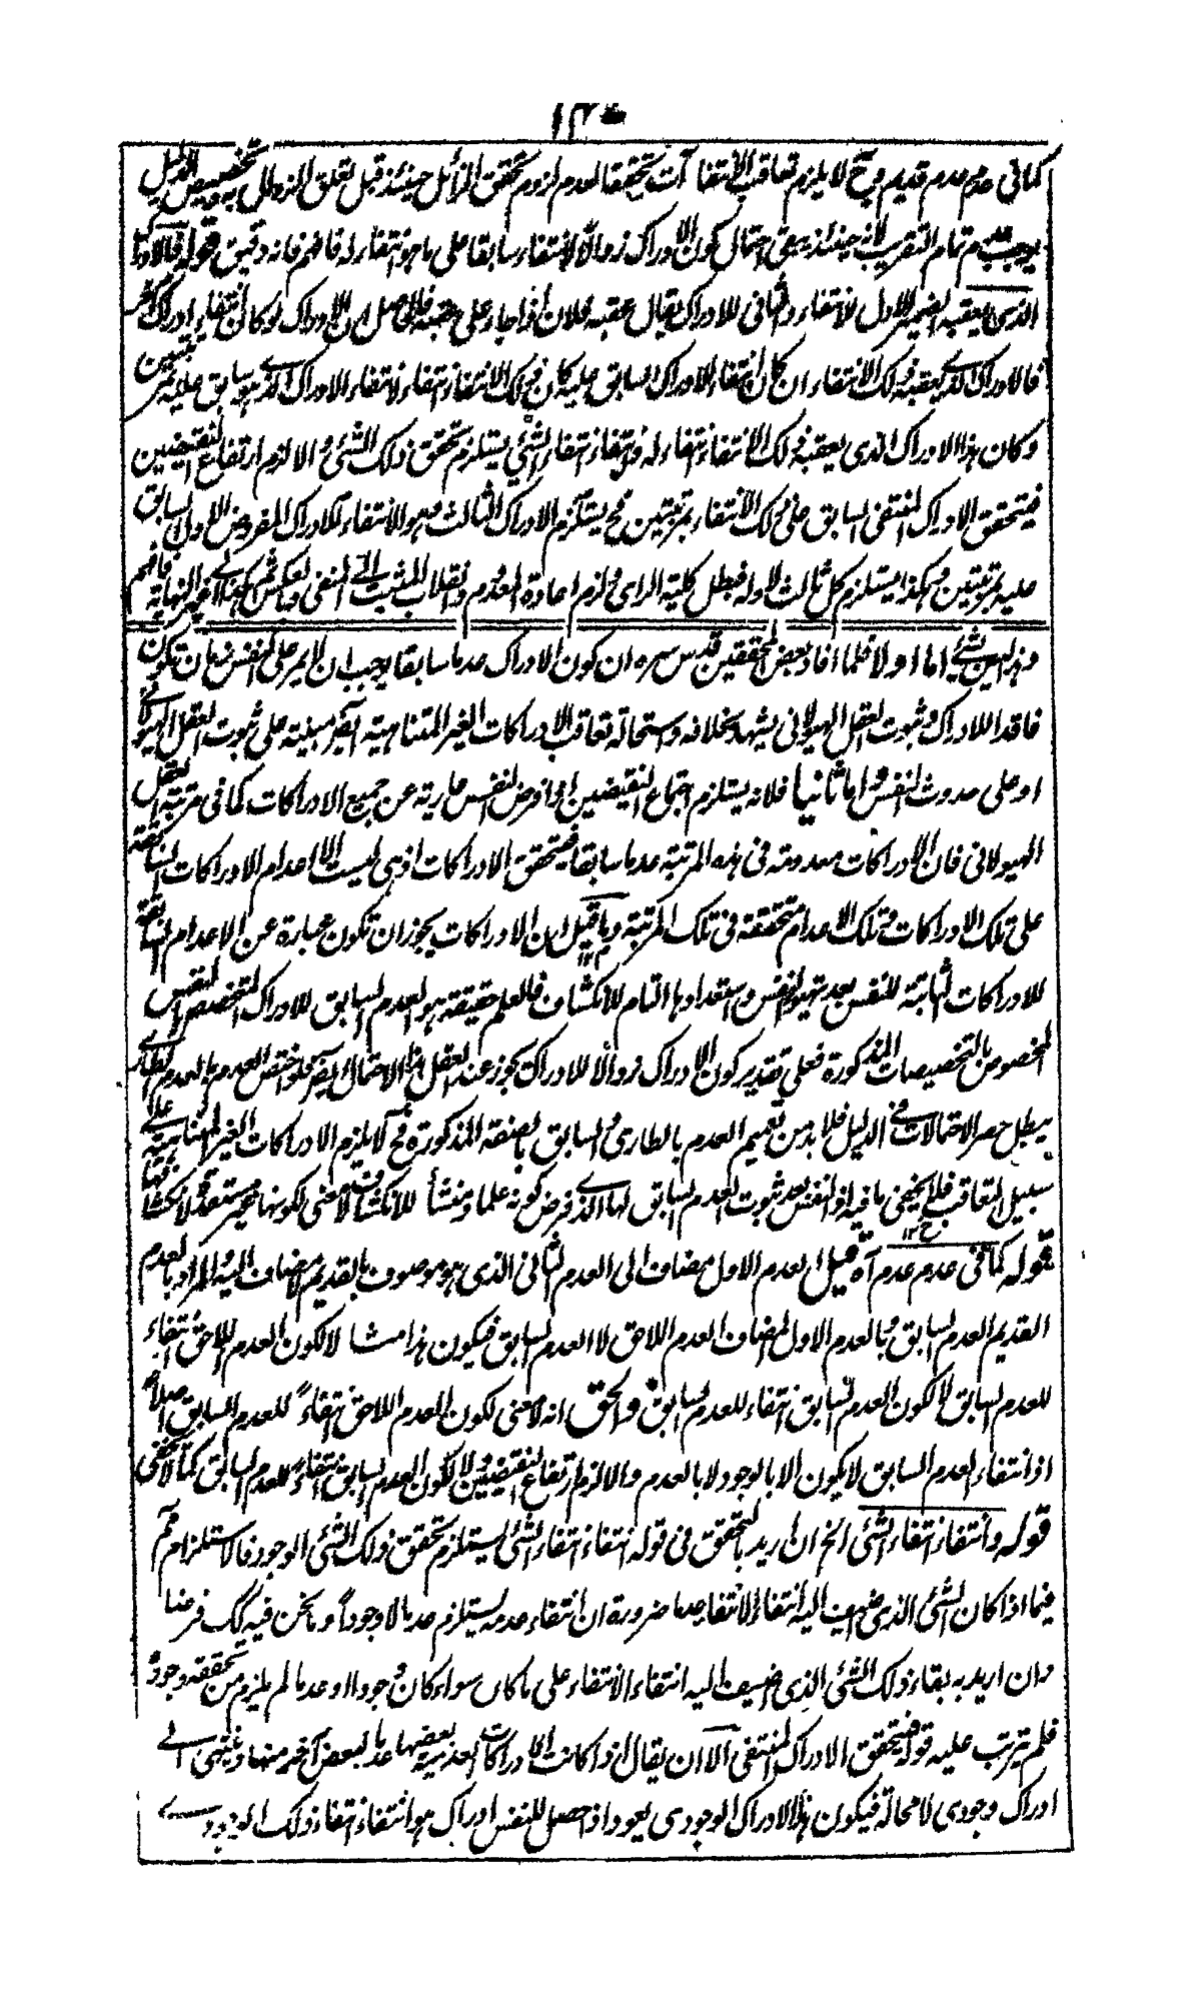 كما في عدم عدم قديم وح لا يلزم تعاقب الانتفاآت لتحققها لعدم لزوم تحقق الزائل حينئذ قبل تعلق الزوال به وتخصيص الدليل
يوجب عدم تمام التقريب لانه حينئذ يبقى احتمال كون الادراك زوالا لانتفاء سابقا على ما هو انتفاء له فافهم فانه دقيق قوله فالادراك
الذى يعقبه الضمير الاول للانتفاء والثانى للادراك يقال عقبه فلان اذا جاء على عقبه فالحاصل ان الادراك لو كان انتفاء ادراك آخر
فالادراك الذى يعقبه ذلك الانتفاء ان كان انتفاء للادراك السابق عليه كان ذلك الانتفاء انتفاء لانتفاء الادراك الذى هو سابق عليه بمرتبتين
وكان هذا الادراك الذى يعقبه ذلك الانتفاء انتفاء له وانتفاء انتفاء الشئ يستلزم تحقق ذلك الشئ والا لزم ارتفاع النقيضين
فيتحقق الادراك المنتفى السابق على ذلك الانتفاء بمرتبتين فح يستلزم الادراك الثالث وهو الانتفاء للادراك المفروض الاول السابق
عليه بمرتبتين وهكذا يستلزم كل ثالث لاوله فبطل كلية الرأى ولزم اعادة المعدوم وانقلاب المثبت الى المنفى وبالعكس ثم هكذا الى غير النهاية فافهم
وهذا ليس بشئ اما اولا فلما افاد بعض المحققين قدس سره ان كون الادراك عدما سابقا يوجب ان لا يمر على النفس زمان تكون
فاقد اللادراك وثبوت العقل الهيولانى يشهد بخلافه واستحالة تعاقب الادراكات الغير المتناهية ايضا مبنية على ثبوت العقل الهيولانى
او على حدوث النفس واما ثانيا فلانه يستلزم اجتماع النقيضين اذا فرض النفس عارية عن جميع الادراكات كما فى مرتبة العقل
الهيولانى فان الادراكات معدومة فى هذه المرتبة عدما سابقا فيتحقق الادراكات اذ هى ليست الا اعدام الادراكات السابقة
على تلك الادراكات وتلك الاعدام متحققة فى تلك المرتبة وما قيل ان الادراكات يجوز ان تكون عبارة عن الاعدام السابقة
للادراكات الثابتة للنفس بعد تهيؤ النفس واستعدادها التام للانكشاف فالعلم حقيقة هو العدم السابق للادراك المتخصص بالنفس
المخصوص بالتخصيصات المذكورة فعلى تقدير كون الادراك زوالا للادراك يجوز عند العقل هذا الاحتمال ايضا فلو اختص العدم بالعدم الطارى
يبطل حصر الاحتمالات فى الدليل فلا بد من تعميم العدم بالطارى والسابق بالصفة المذكورة فح لا يلزم الادراكات الغير المتناهية على
سبيل التعاقب فلا يخفى ما فيه اذ النفس بعد ثبوت العدم السابق لها الذى فرض كونه علما ومنشأ للانكشاف لا معنى لكونها غير مستعدة لانكشافها
قوله كما فى عدم عدم آه قيل العدم الاول مضاف الى العدم الثانى الذى هو موصوف بالقديم لا مضاف اليه والمراد بالعدم
القديم العدم السابق وبالعدم الاول المضاف العدم اللاحق لا العدم السابق فيكون هذا مثالا لكون العدم اللاحق انتفاء
للعدم السابق لا لكون العدم السابق انتفاء للعدم السابق والحق انه لا معنى لكون العدم اللاحق انتفاءً للعدم السابق اصلاً
اذ انتفاء العدم السابق لا يكون الا بالوجود لا بالعدم والا لزم ارتفاع النقيضين ولا لكون العدم السابق انتفاءً للعدم السابق كما لا يخفى
قوله وانتفاء انتفاء الشئ الخ ان اريد بالتحقق فى قوله انتفاء انتفاء الشئ يستلزم تحقق ذلك الشئ الوجود فالاستلزام مم
فيما اذا كان الشئ الذى اضيف اليه انتفاء الانتفاء عدما ضرورة ان انتفاء عدمه يستلزم عدما لا وجوداً وما نحن فيه كك فرضا
وان اريد به بقاء ذلك الشئ الذى اضيف اليه انتفاء الانتفاء على ما كان سواء كان وجودا او عدما لم يلزم من تحققه وجودٌ
فلم يترتب عليه قوله فيتحقق الادراك المنتفى الا ان يقال اذا كانت الادراكات العدمية بعضها عدما لبعض آخر منها وينتهى الى
ادراك وجودى لا محالة فيكون هذا الادراك الوجودى يعود اذا حصل للنفس ادراك هو انتفاء انتفاء ذلك الوجودى